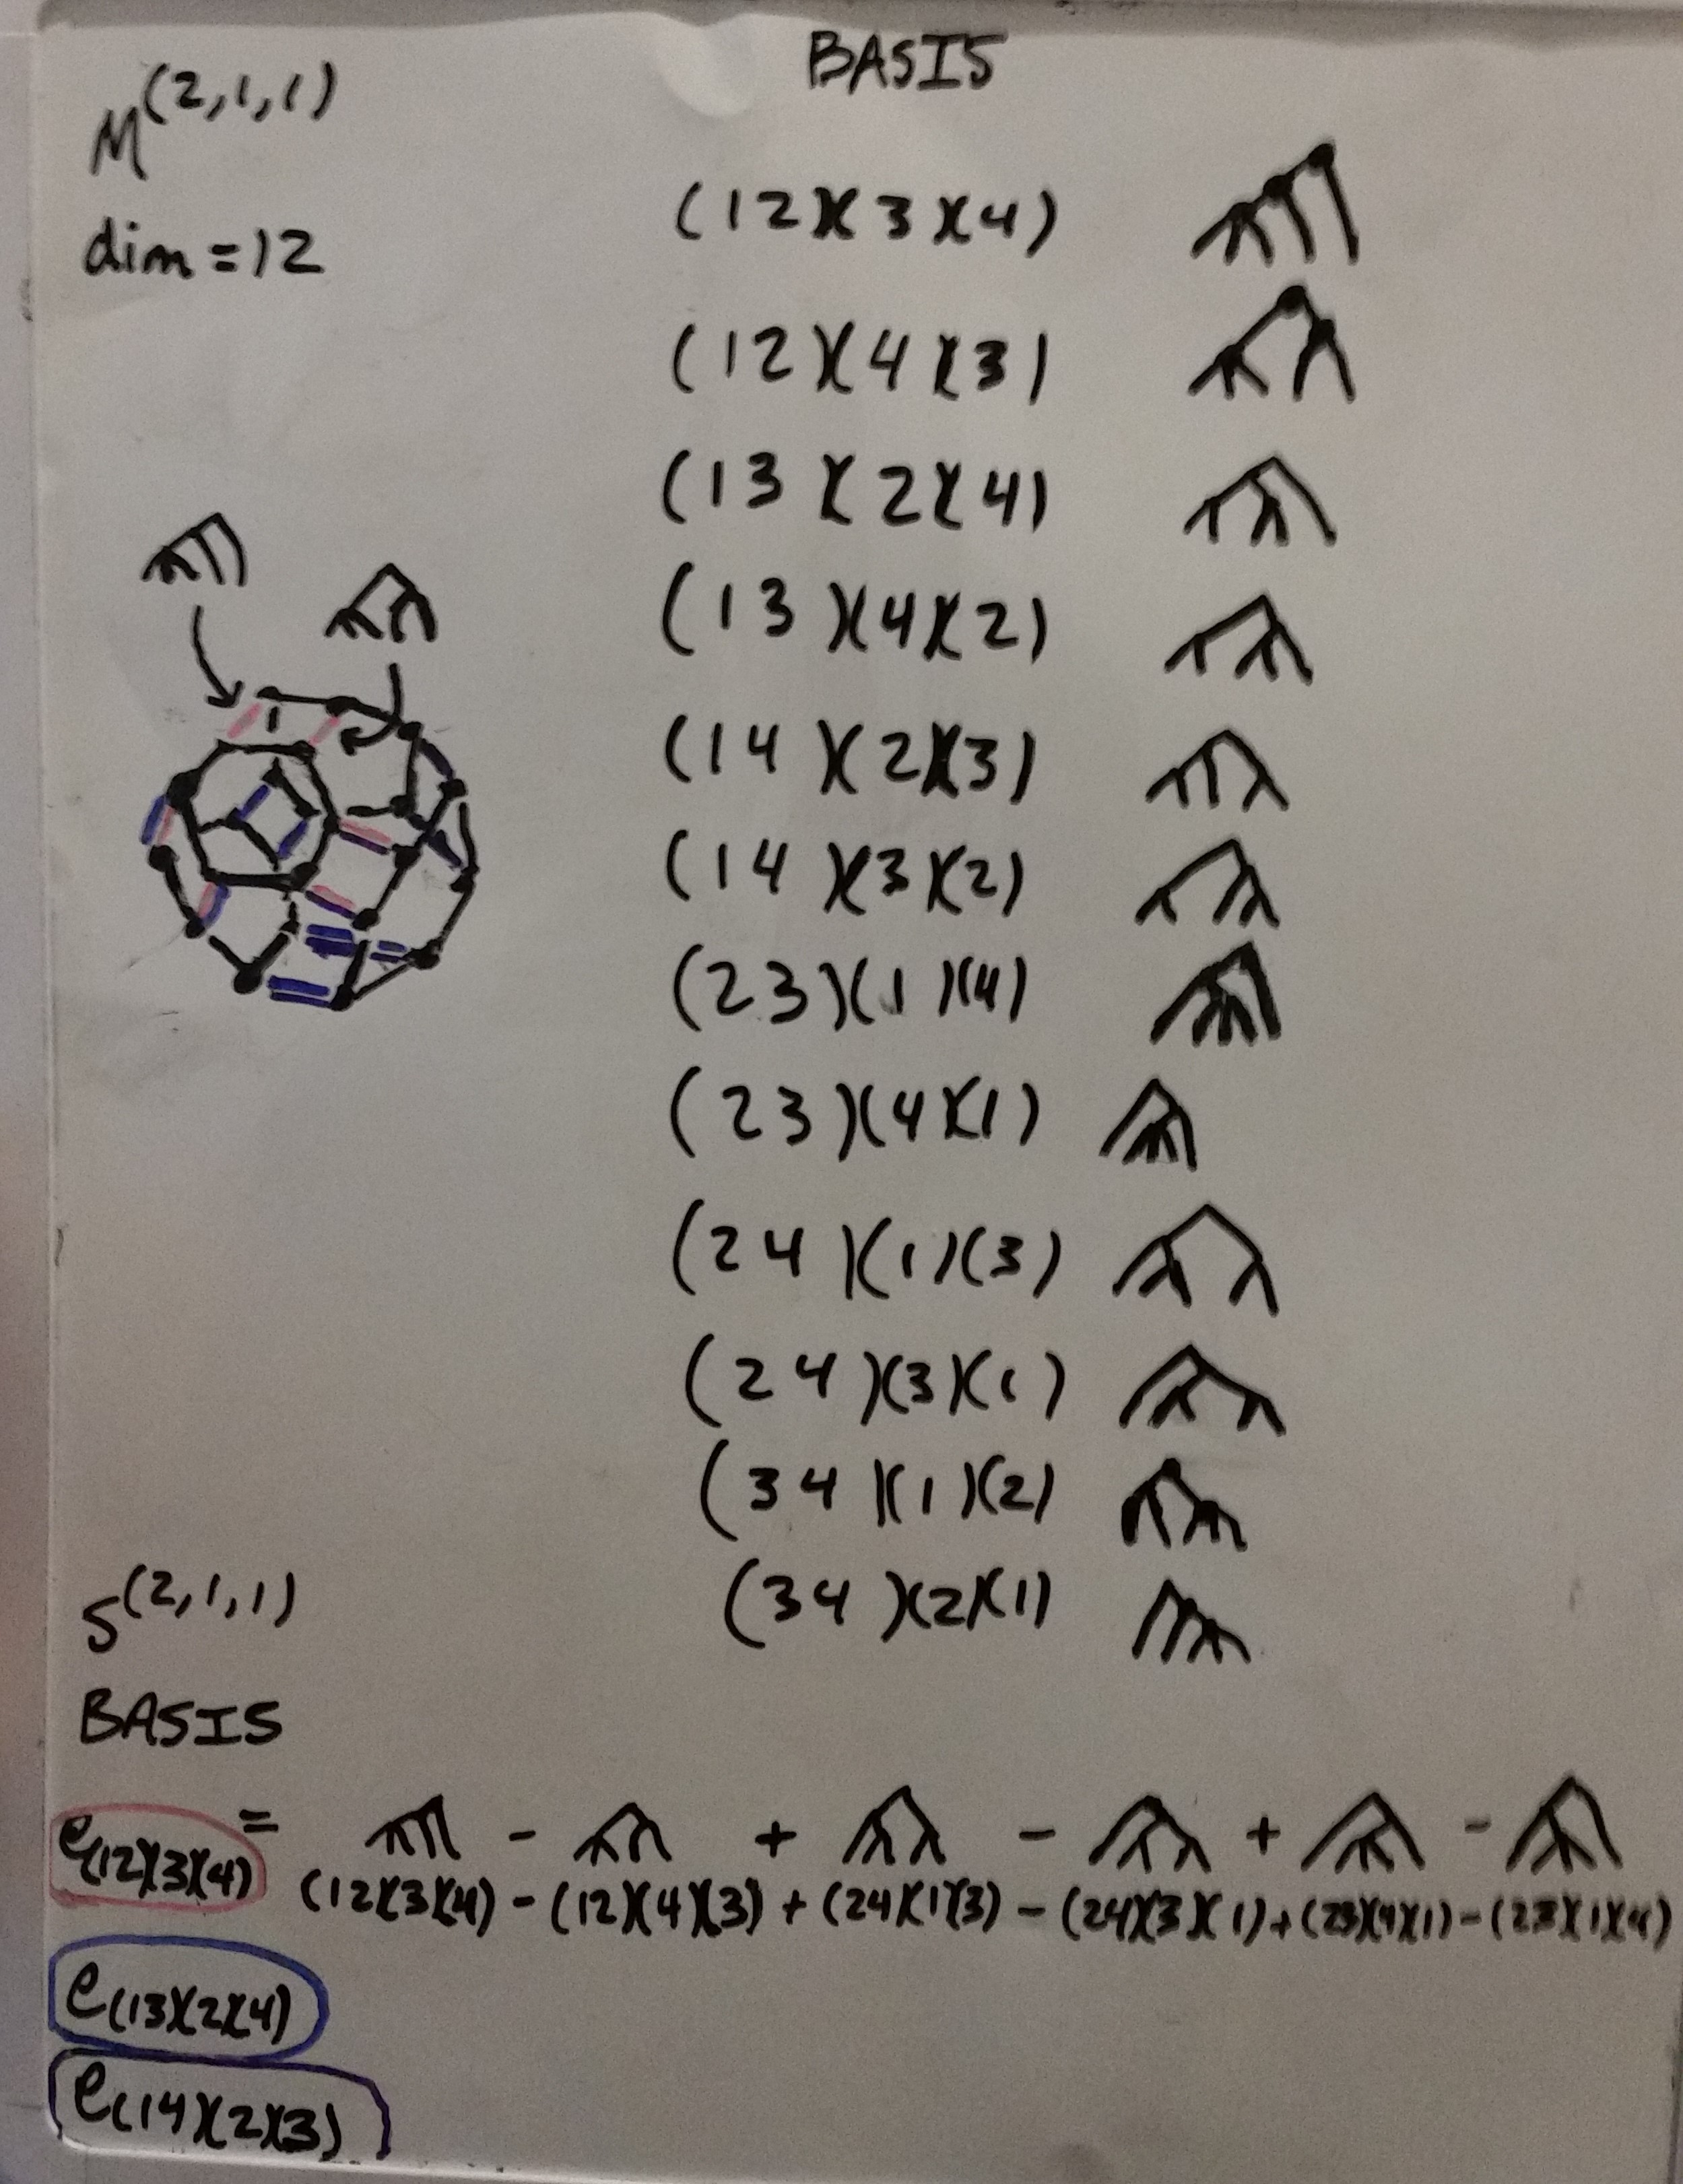 M^(2,1,1)
dim=12
BASIS
(12)(3)(4)
(12)(4)(3)
(13)(2)(4)
(13)(4)(2)
(14)(2)(3)
(14)(3)(2)
(23)(1)(4)
(23)(4)(1)
(24)(1)(3)
(24)(3)(1)
(34)(1)(2)
(34)(2)(1)
S^(2,1,1)
BASIS
e_(12)(3)(4) = - + - + -
(12)(3)(4) - (12)(4)(3) + (24)(1)(3) - (24)(3)(1) + (23)(4)(1) - (23)(1)(4)
e_(13)(2)(4)
e_(14)(2)(3)